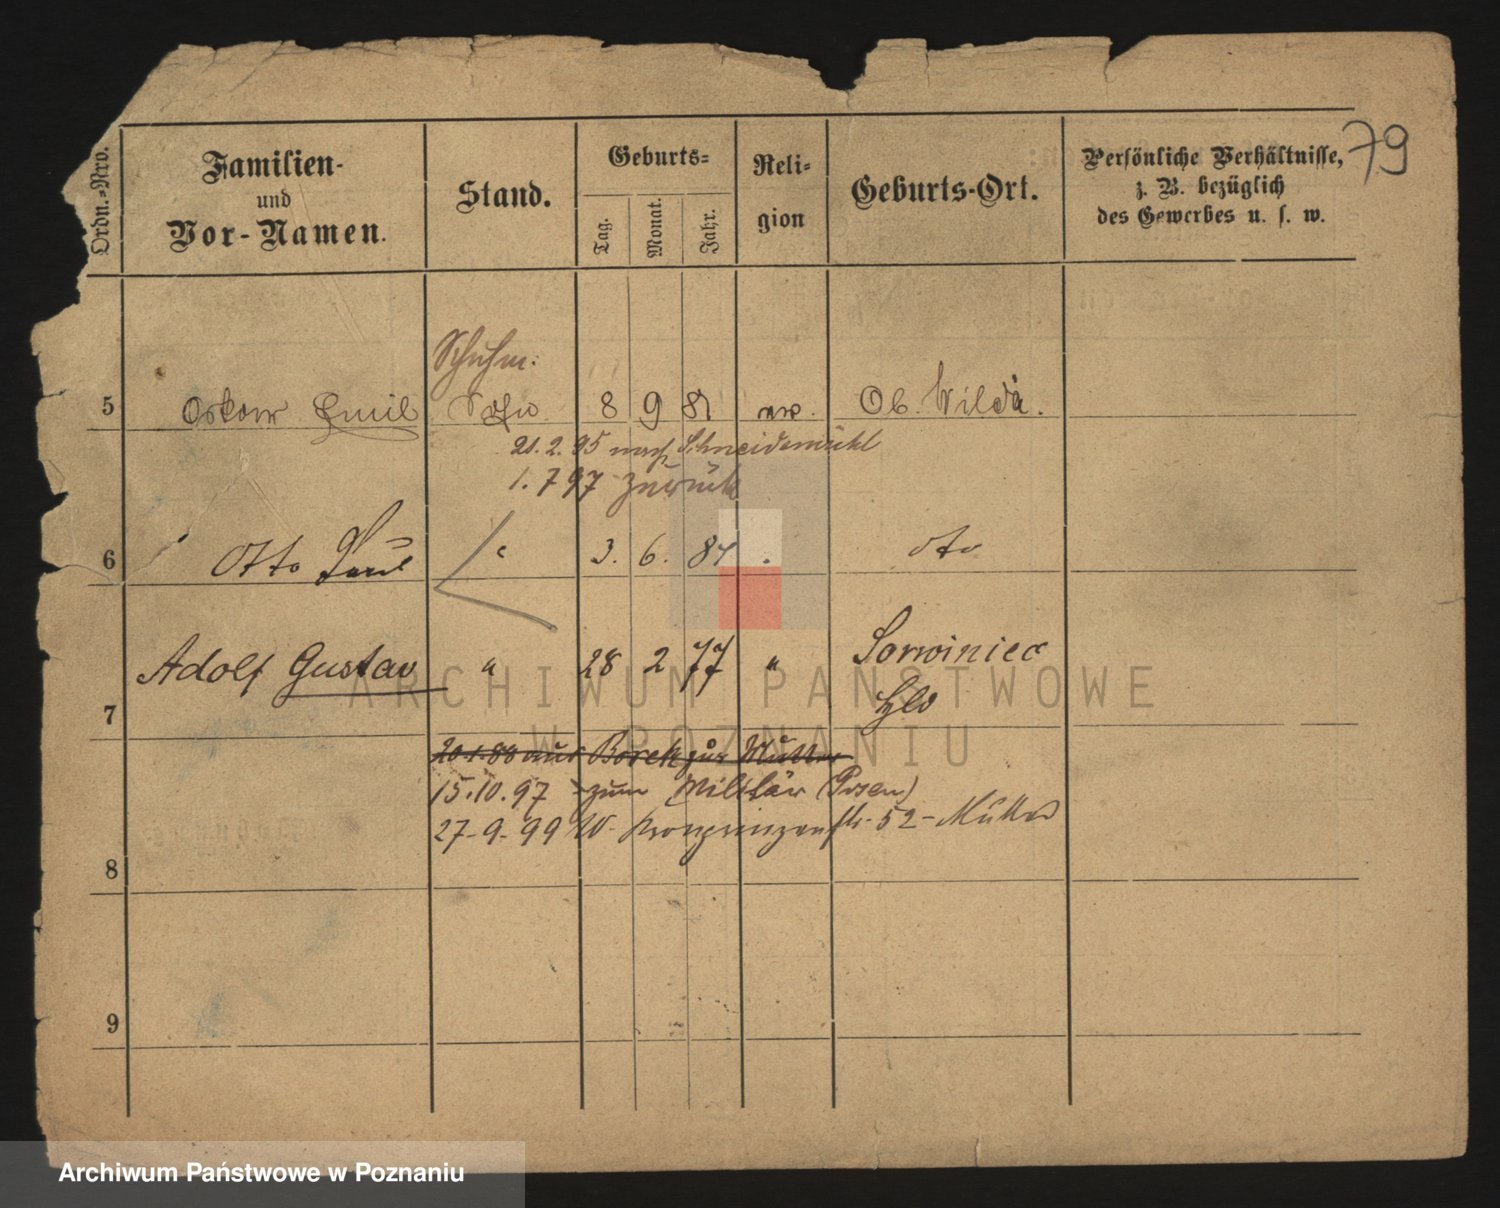 79
Ordn.-Nro.
Familien-
und
Vor-Namen.
Stand.
Geburts-
Tag.
Monat.
Jahr.
Reli-
gion
Geburts-Ort.
Persönliche Verhältnisse,
z. B. bezüglich
des Gewerbes u. s. w.
Schuhm.
5 Oskar Emil 8 9 81 ev. Ob. Wilda.
21.2.95 nach Schneidemühl
1.7 97 zurück
6 Otto Paul " 3. 6. 84 " dto
7 Adolf Gustav " 28 2 77 "
20.1.88 aus Borek zur Mutter
15.10.97 zum Militär (Posen)
27-9-99 W. Kronprinzenstr. 52-Mutter
8
9
ARCHIWUM PAŃSTWOWE
W POZNANIU
Archiwum Państwowe w Poznaniu